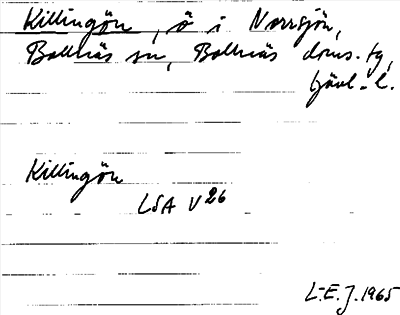 Killingön, ö i Norrsjön,
Bollnäs sn, Bollnäs doms. tg,
Gävl. l.
Killingön
LSA V 26
L-E. J. 1965